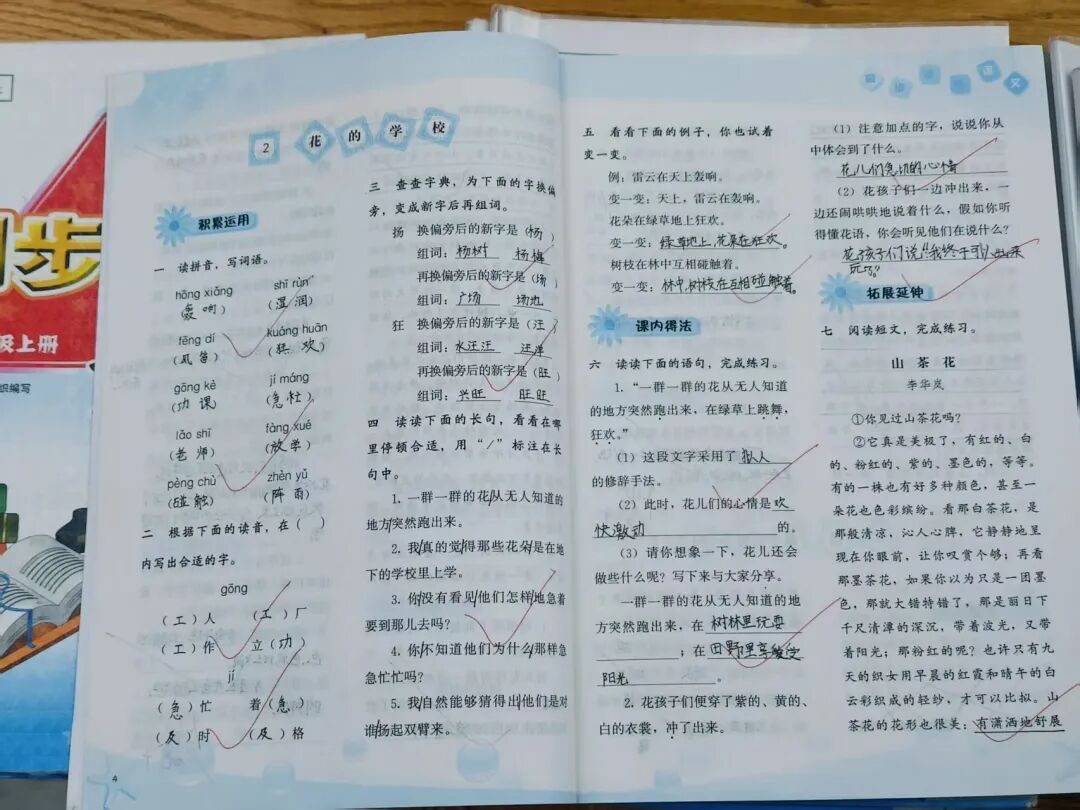 同步
级上册
织编写
2 花的学校
积累运用
一 读拼音,写词语。
hōng xiǎng shī rùn
(轰响) (湿润)
fēng dí kuáng huān
(风笛) (狂欢)
gōng kè jí máng
(功课) (急忙)
lǎo shī fàng xué
(老师) (放学)
pèng chù zhèn yǔ
(碰触) (阵雨)
二 根据下面的读音,在( )
内写出合适的字。
gōng
(工)人 (工)厂
(工)作 立(功)
jí
(急)忙 着(急)
(及)时 (及)格
4
三 查查字典,为下面的字换偏
旁,变成新字后再组词。
扬 换偏旁后的新字是(杨)
组词:杨树 杨梅
再换偏旁后的新字是(场)
组词:广场 场地
狂 换偏旁后的新字是(汪)
组词:水汪汪 汪洋
再换偏旁后的新字是(旺)
组词:兴旺 旺旺
四 读读下面的长句,看看在哪
里停顿合适,用“/”标注在长
句中。
1. 一群一群的花/从无人知道的
地方/突然跑出来。
2. 我/真的觉/得那些花朵/是在地
下的学校里上学。
3. 你/没有看见/他们怎样/地急着
要到那儿去吗?
4. 你/不知道他们为什么/那样急
急忙忙吗?
5. 我/自然能够猜得出/他们是对
谁/扬起双臂来。
五 看看下面的例子,你也试着
变一变。
例:雷云在天上轰响。
变一变:天上,雷云在轰响。
花朵在绿草地上狂欢。
变一变:绿草地上,花朵在狂欢。
树枝在林中互相碰触着。
变一变:林中,树枝在互相碰触着。
课内得法
六 读读下面的语句,完成练习。
1. “一群一群的花从无人知道
的地方突然跑出来,在绿草上跳舞,
狂欢。”
(1) 这段文字采用了 拟人
的修辞手法。
(2) 此时,花儿们的心情是 欢
快激动 的。
(3) 请你想象一下,花儿还会
做些什么呢?写下来与大家分享。
一群一群的花从无人知道的地
方突然跑出来,在 树林里玩耍
;在 田野里享受
阳光 。
2. 花孩子们便穿了紫的、黄的、
白的衣裳,冲了出来。
语文
(1) 注意加点的字,说说你从
中体会到了什么。
花儿们急切的心情
(2) 花孩子们一边冲出来,一
边还闹哄哄地说着什么,假如你听
得懂花语,你会听见他们在说什么?
花孩子们说:“我终于可以出来
玩了”
拓展延伸
七 阅读短文,完成练习。
山茶花
李华岚
①你见过山茶花吗?
②它真是美极了,有红的、白
的、粉红的、紫的、墨色的,等等。
有的一株也有好多种颜色,甚至一
朵花也色彩缤纷。看那白茶花,是
那般清凉,沁人心脾,它静静地呈
现在你眼前,让你叹赏个够;再看
那墨茶花,如果你以为只是一团墨
色,那就大错特错了,那是丽日下
千尺清潭的深沉,带着波光,又带
着阳光;那粉红的呢?也许只有九
天的织女用早晨的红霞和晴午的白
云彩织成的轻纱,才可以比拟。山
茶花的花形也很美:有潇洒地舒展